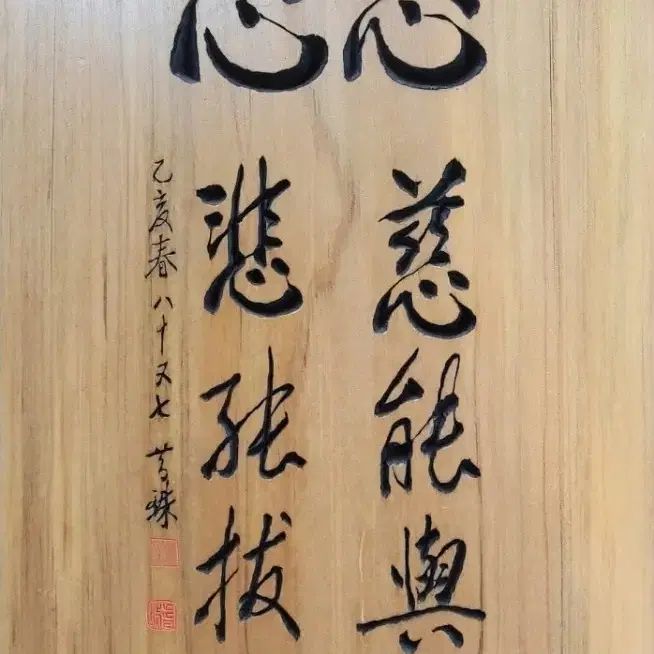 慈能與
悲能拔
乙亥春八十又七